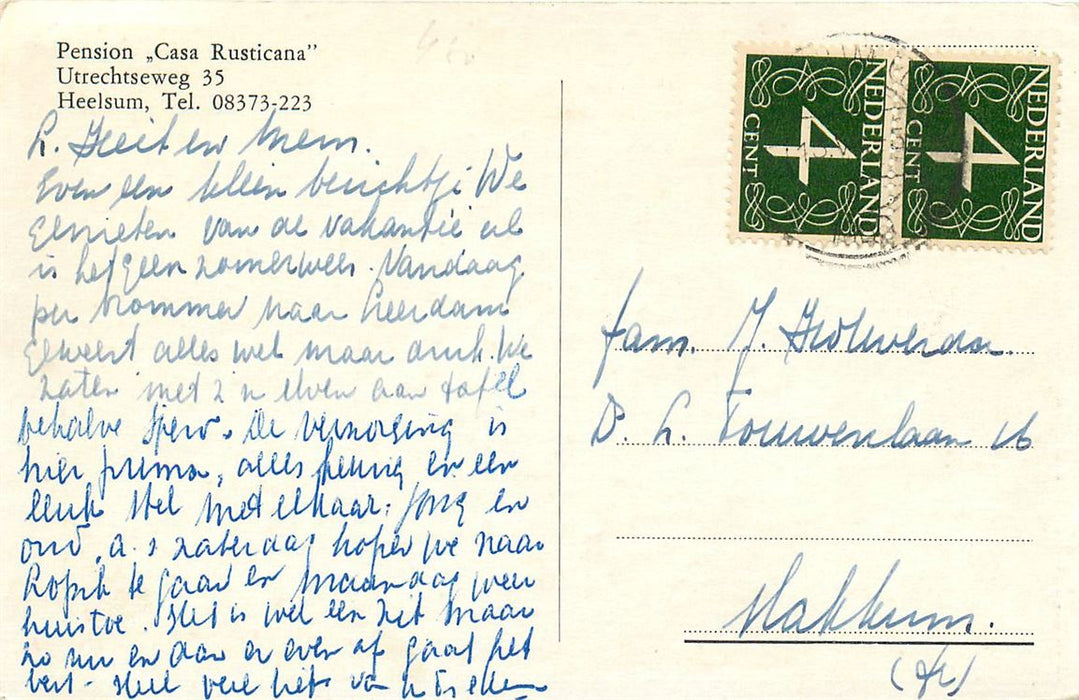 Pension „Casa Rusticana"
Utrechtseweg 35
Heelsum, Tel. 08373-223
L. Heit en Mem.
Even een klein berichtje We
genieten van de vakantie al
is het geen zomerweer. Vandaag
per brommer naar Leerdam
geweest alles wel maar druk. We
zaten met z'n elven aan tafel
behalve . De verzorging is
hier prima, alles keurig en een
leuk stel met elkaar; jong en
oud, a.s zaterdag hopen we naar
te gaan en maandag weer
huistoe. Het is wel een zit maar
zo nu en dan er even af gaat het
best. Heel veel liefs van
NEDERLAND
4
CENT
NEDERLAND
4
CENT
fam. J.
D. L. Touwenlaan 16
Makkum.
(Fr)